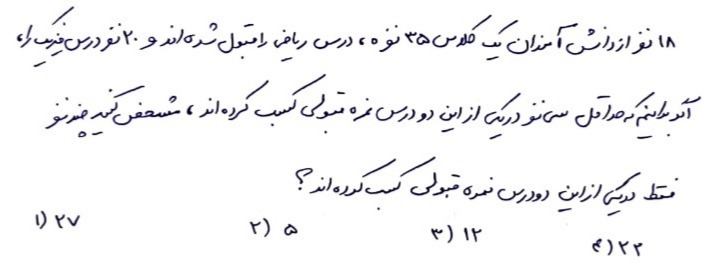 ۱۸ نفر از دانش آموزان یک کلاس ۳۵ نفره، درس ریاضی را قبول شده اند و ۲۰ نفر درس فیزیک را،
اگر بدانیم که حداقل سی نفر در یکی از این دو درس نمره قبولی کسب کرده اند، مشخص کنید چند نفر
فقط در یکی از این دو درس نمره قبولی کسب کرده اند؟
۱) ۲۷ ۲) ۵ ۳) ۱۲ ۴) ۲۲